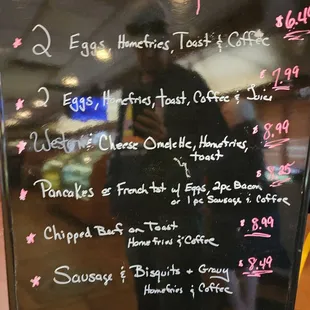 $6.49
2 Eggs, Homefries, Toast & Coffee
$7.99
2 Eggs, Homefries, toast, Coffee & Juice
Western & Cheese Omelette, Homefries, $8.99
toast
$8.25
Pancakes or French tst w/ Eggs, 2pc Bacon,
or 1 pc Sausage & Coffee
Chipped Beef on Toast $8.99
Homefries & Coffee
Sausage & Bisquits + Gravy $8.49
Homefries & Coffee